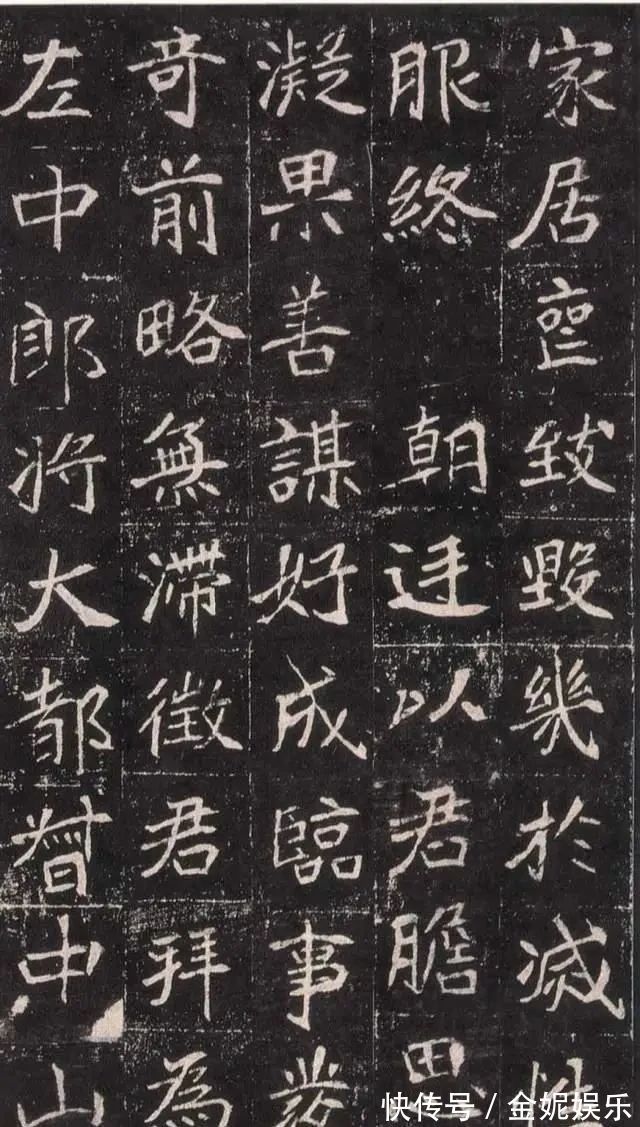 家居喪致毀幾於滅性
服終 朝廷以君膽思
凝果善謀好成臨事發
奇前略無滯徵君拜為
左中郎將大都督中山
快传号 / 金妮娱乐